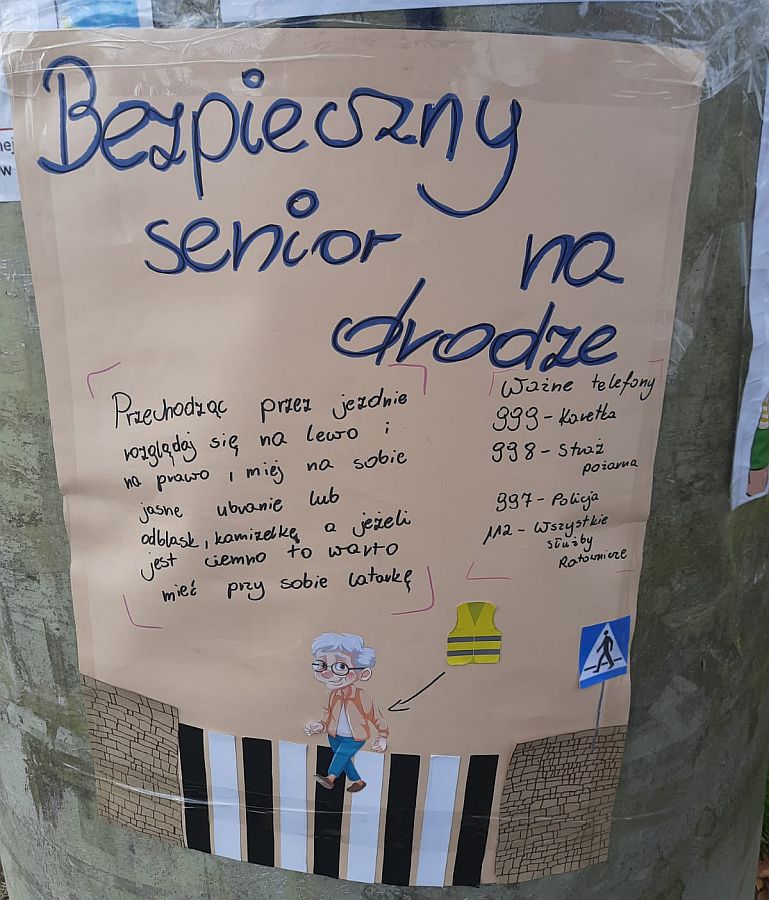 Bezpieczny
senior na
drodze
Przechodząc przez jezdnie
rozglądaj się na lewo i
na prawo i miej na sobie
jasne ubranie lub
odblask, kamizelkę a jeżeli
jest ciemno to warto
mieć przy sobie latarkę
Ważne telefony
999 - Karetka
998 - Straż
pożarna
997 - Policja
112 - Wszystkie
służby
Ratownicze
nej
w